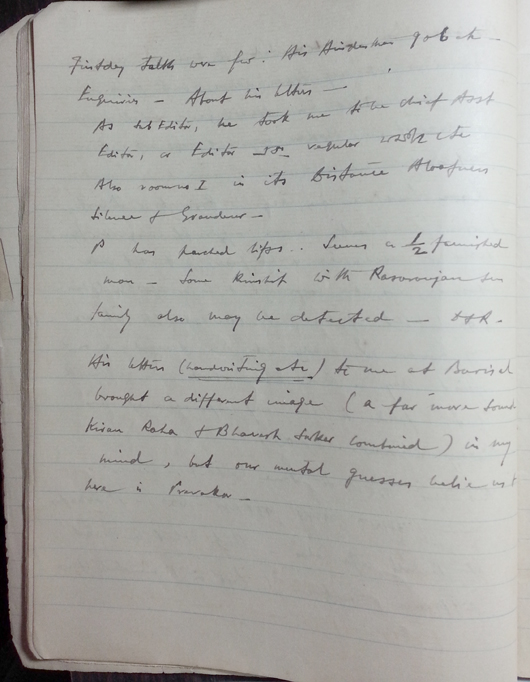 First day talks were few: His Hindustan job etc —
Enquiries — About his letters —
As Sub Editor, he took me to be chief Asst
Editor, or Editor regular work etc
Also rooms I in its Distance Aloofness
Silence & Grandeur —
P has parched lips.. Seems a ½ famished
man — Some kinship with Rasaranjan Sen
family also may be detected —
His letters (handwriting etc) to me at Barisal
brought a different image (a far more
Kiran Raha & Bhavesh Sarker combined) in my
mind, but our mental guesses belie us
here is Pravakar —